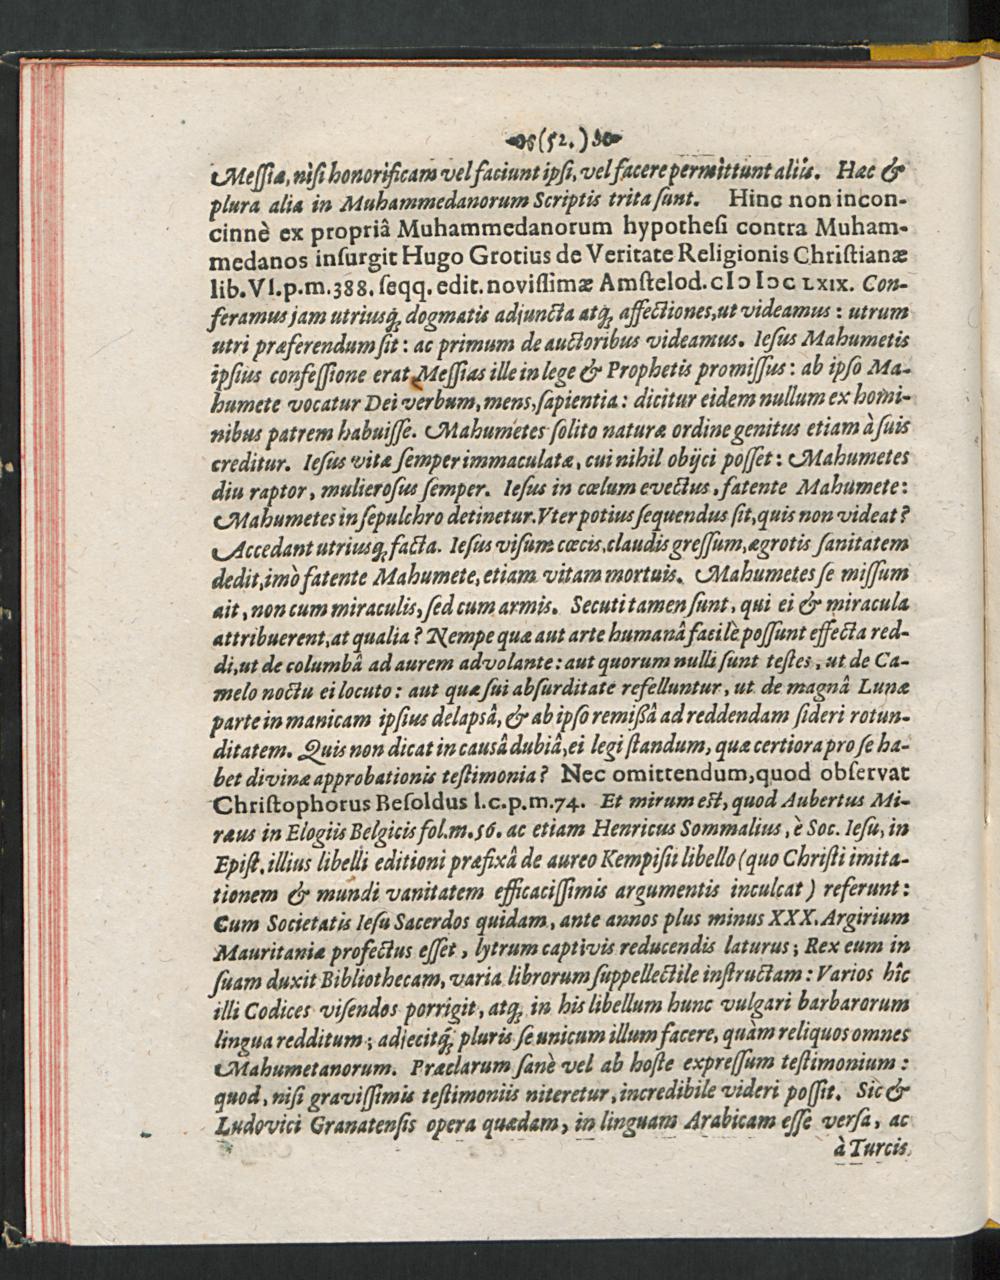 (52.)
Meſſiæ, niſi honorificam vel faciunt ipſi, vel facere permittunt aliis. Hæc &
plura alia in Muhammedanorum Scriptis trita ſunt. Hinc non incon-
cinnè ex propriâ Muhammedanorum hypotheſi contra Muham-
medanos inſurgit Hugo Grotius de Veritate Religionis Chriſtianæ
lib. VI. p. m. 388. ſeqq. edit. noviſſimæ Amſtelod. cIↄ Iↄc LXIX. Con-
feramus jam utriusq́; dogmatis adjuncta atq́; affectiones, ut videamus: utrum
utri præferendum ſit: ac primum de auctoribus videamus. Ieſus Mahumetis
ipſius confeſſione erat Meſſias ille in lege & Prophetis promiſſus: ab ipſo Ma-
humete vocatur Dei verbum, mens, ſapientia: dicitur eidem nullum ex homi-
nibus patrem habuiſſe. Mahumetes ſolito naturæ ordine genitus etiam à ſuis
creditur. Ieſus vitæ ſemper immaculatæ, cui nihil obijci poſſet: Mahumetes
diu raptor, mulieroſus ſemper. Ieſus in cœlum evectus, fatente Mahumete:
Mahumetes in ſepulchro detinetur. Vter potius ſequendus ſit, quis non videat?
Accedant utriusq́; facta. Ieſus viſum cœcis, claudis greſſum, ægrotis ſanitatem
dedit, imò fatente Mahumete, etiam vitam mortuis. Mahumetes ſe miſſum
ait, non cum miraculis, ſed cum armis. Secuti tamen ſunt, qui ei & miracula
attribuerent, at qualia? Nempe quæ aut arte humanâ facilè poſſunt effecta red-
di, ut de columbâ ad aurem advolante: aut quorum nulli ſunt teſtes, ut de Ca-
melo noctu ei locuto: aut quæ ſui abſurditate refelluntur, ut de magnâ Lunæ
parte in manicam ipſius delapsâ, & ab ipſo remißâ ad reddendam ſideri rotun-
ditatem. Quis non dicat in causâ dubiâ, ei legi ſtandum, quæ certiora pro ſe ha-
bet divinæ approbationis teſtimonia? Nec omittendum, quod obſervat
Chriſtophorus Beſoldus l. c. p. m. 74. Et mirum eſt, quod Aubertus Mi-
ræus in Elogiis Belgicis fol. m. 56. ac etiam Henricus Sommalius, è Soc. Ieſu, in
Epiſt. illius libelli editioni præfixâ de aureo Kempiſii libello (quo Chriſti imita-
tionem & mundi vanitatem efficaciſſimis argumentis inculcat) referunt:
Cum Societatis Ieſu Sacerdos quidam, ante annos plus minus XXX. Argirium
Mauritaniæ profectus eſſet, lytrum captivis reducendis laturus; Rex eum in
ſuam duxit Bibliothecam, varia librorum ſuppellectile inſtructam: Varios hîc
illi Codices viſendos porrigit, atq́; in his libellum hunc vulgari barbarorum
lingua redditum; adjecitq́; pluris ſe unicum illum facere, quàm reliquos omnes
Mahumetanorum. Præclarum ſanè vel ab hoſte expreſſum teſtimonium:
quod, niſi graviſſimis teſtimoniis niteretur, incredibile videri poſſit. Sic &
Ludovici Granatenſis opera quædam, in linguam Arabicam eſſe verſa, ac
à Turcis